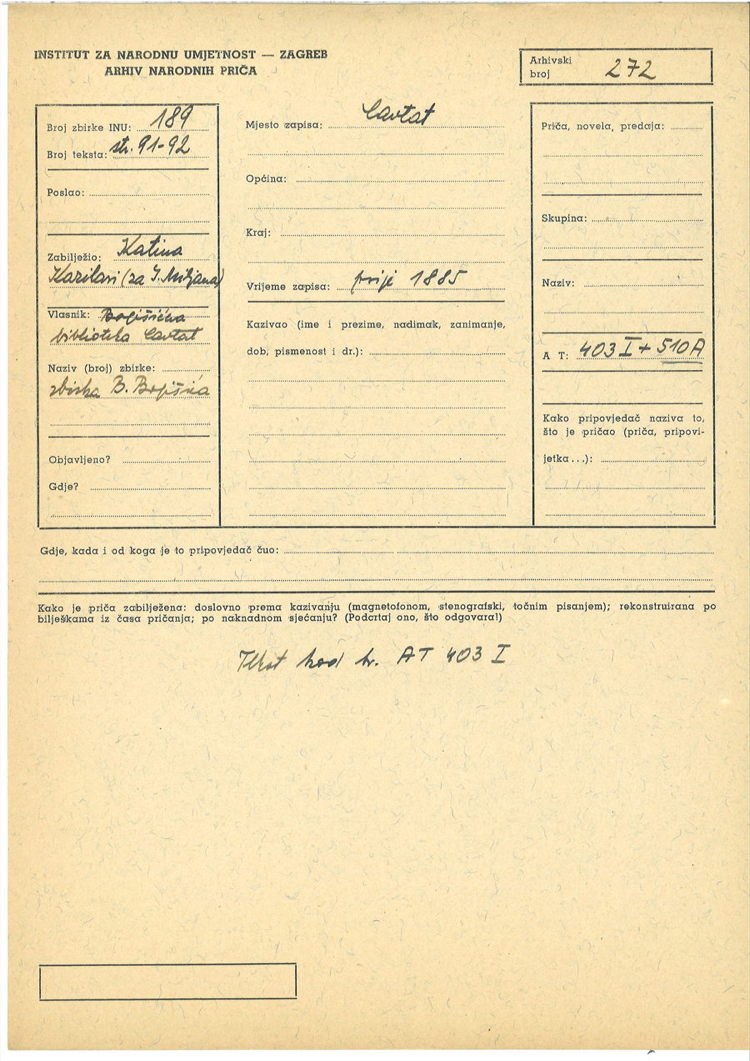 INSTITUT ZA NARODNU UMJETNOST — ZAGREB
ARHIV NARODNIH PRIČA
Arhivski
broj 272
Broj zbirke INU: 189
Broj teksta: str. 91-92
Poslao:
Zabilježio: Katina
(za
Vlasnik: Bogišićeva
biblioteka Cavtat
Naziv (broj) zbirke:
zbirka B. Bogišića
Objavljeno?
Gdje?
Mjesto zapisa: Cavtat
Općina:
Kraj:
Vrijeme zapisa: prije 1885
Kazivao (ime i prezime, nadimak, zanimanje,
dob, pismenost i dr.):
Priča, novela, predaja:
Skupina:
Naziv:
A T: 403 I + 510A
Kako pripovjedač naziva to,
što je pričao (priča, pripovi-
jetka...):
Gdje, kada i od koga je to pripovjedač čuo:
Kako je priča zabilježena: doslovno prema kazivanju (magnetofonom, stenografski, točnim pisanjem); rekonstruirana po
bilješkama iz časa pričanja; po naknadnom sjećanju? (Podcrtaj ono, što odgovara!)
Tekst kod br. AT 403 I